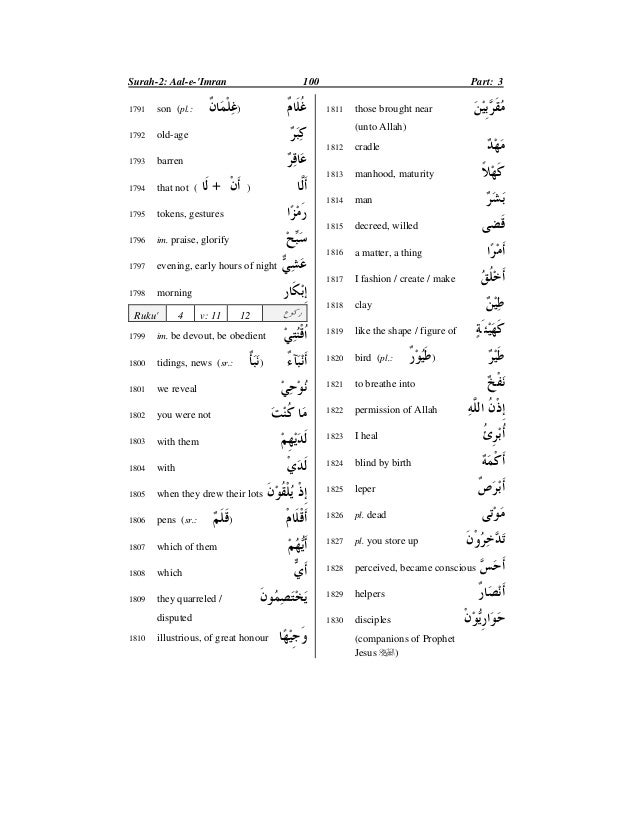 Surah-2: Aal-e-'Imran 100 Part: 3
1791 son (pl.: غِلْمَانٌ) غُلَامٌ
1792 old-age كِبَرٌ
1793 barren عَاقِرٌ
1794 that not ( أَنْ + لَا ) أَلَّا
1795 tokens, gestures رَمْزًا
1796 im. praise, glorify سَبِّحْ
1797 evening, early hours of night عَشِيٌّ
1798 morning إِبْكَار
Ruku' 4 v: 11 12 ركوع
1799 im. be devout, be obedient اُقْنُتِيْ
1800 tidings, news (sr.: نَبَأٌ) أَنْبَآءٌ
1801 we reveal نُوْحِيْ
1802 you were not مَا كُنْتَ
1803 with them لَدَيْهِمْ
1804 with لَدَيْ
1805 when they drew their lots إِذْ يُلْقُوْنَ
1806 pens (sr.: قَلَمٌ) أَقْلَامٌ
1807 which of them أَيُّهُمْ
1808 which أَيٌّ
1809 they quarreled / يَخْتَصِمُونَ
disputed
1810 illustrious, of great honour وَجِيْهًا
1811 those brought near مُقَرَّبِيْنَ
(unto Allah)
1812 cradle مَهْدٌ
1813 manhood, maturity كَهْلاً
1814 man بَشَرٌ
1815 decreed, willed قَضٰى
1816 a matter, a thing أَمْرًا
1817 I fashion / create / make أَخْلُقُ
1818 clay طِيْنٌ
1819 like the shape / figure of كَهَيْئَةِ
1820 bird (pl.: طُيُوْرٌ) طَيْرٌ
1821 to breathe into نَفْخٌ
1822 permission of Allah إِذْنُ اللَّهِ
1823 I heal أُبْرِئُ
1824 blind by birth أَكْمَهٌ
1825 leper أَبْرَصٌ
1826 pl. dead مَوْتٰى
1827 pl. you store up تَدَّخِرُوْنَ
1828 perceived, became conscious أَحَسَّ
1829 helpers أَنْصَارٌ
1830 disciples حَوَارِيُّوْنَ
(companions of Prophet
Jesus )